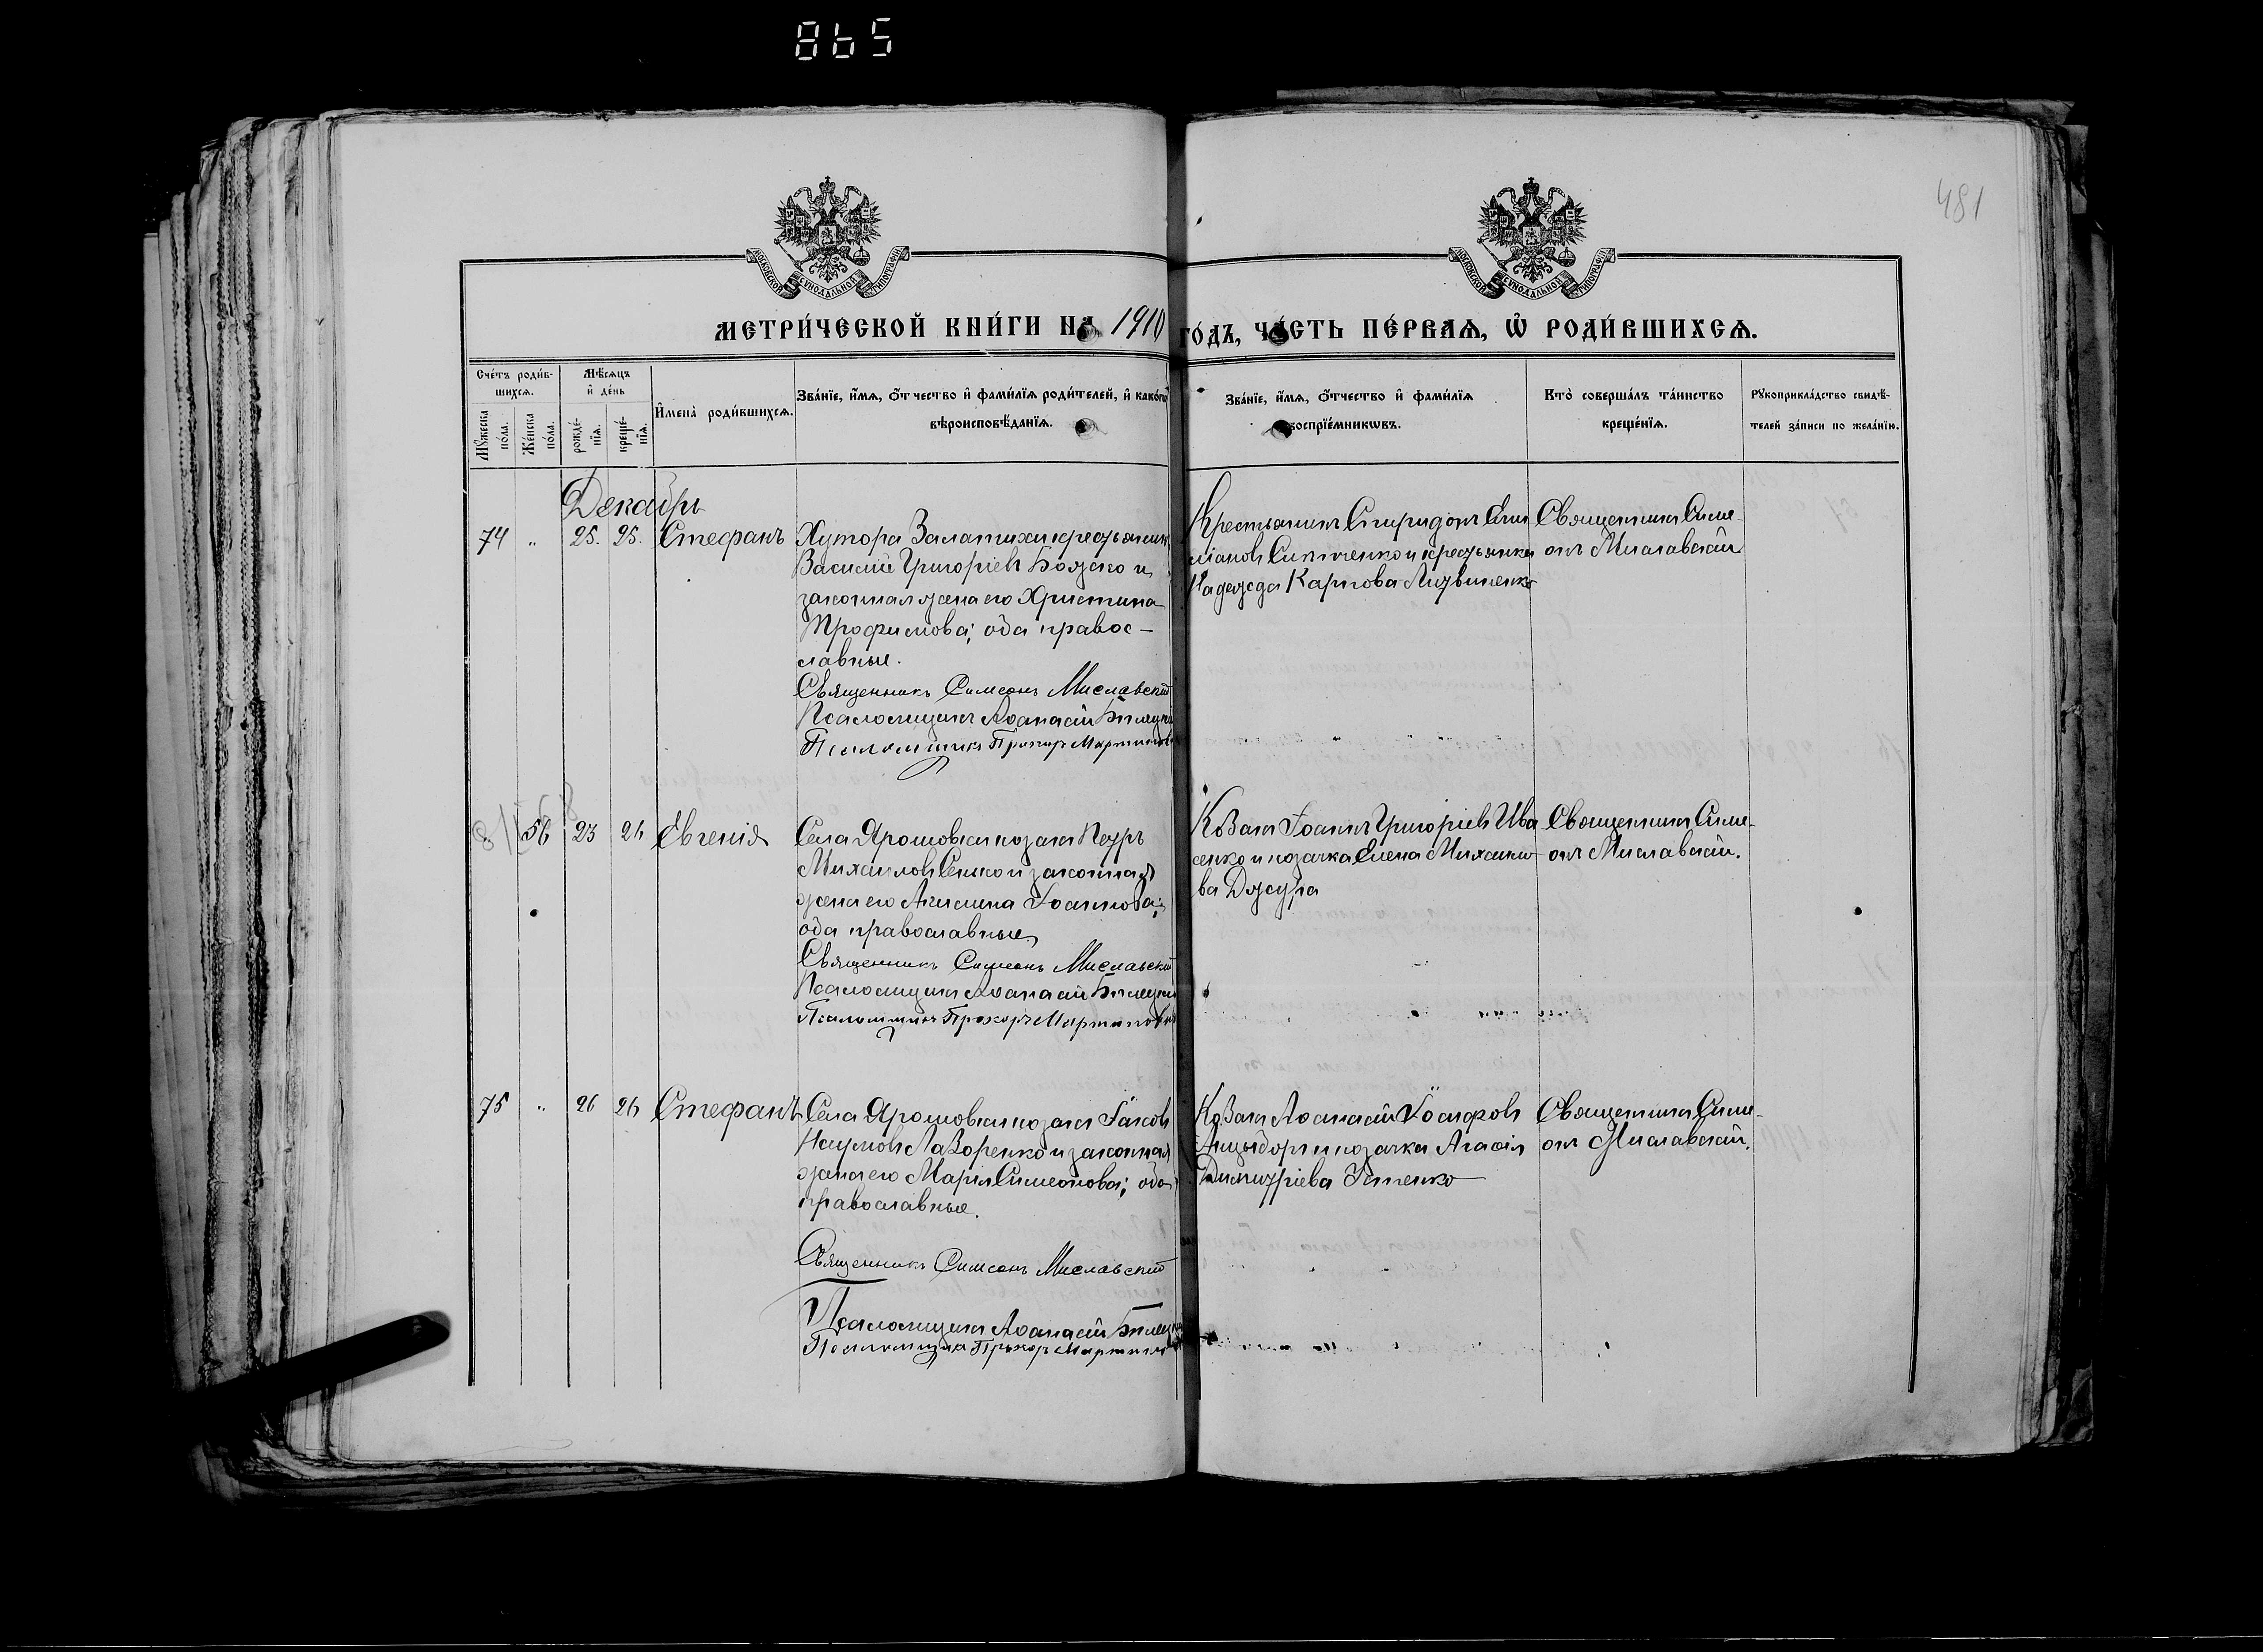 865
481
МОСКОВСКОЙ СУНОДАЛЬНОЙ ТИПОГРАФІИ
МОСКОВСКОЙ СУНОДАЛЬНОЙ ТИПОГРАФІИ
МЕТРИ́ЧЕСКОЙ КНИ́ГИ НА 1910 ГО́ДЪ, ЧА́СТЬ ПЕ́РВАѦ, Ѿ РОДИ́ВШИХСѦ.
Сче́тъ роди́в-
шихсѧ.
Мꙋжеска по́ла.
Же́нска по́ла.
Мѣ́сѧцъ
и҆ де́нь
рожде́-
нїѧ.
креще́-
нїѧ.
И҆мена̀ роди́вшихсѧ.
Зва́нїе, и҆́мѧ, ѻ҆́тчество и҆ фами́лїѧ роди́телей, и҆ како́гѡ
вѣроисповѣ́данїѧ.
Зва́нїе, и҆́мѧ, ѻ҆́тчество и҆ фами́лїѧ
воспрїе́мникѡвъ.
Кто̀ соверша́лъ та́инство
креще́нїѧ.
Рꙋкоприкла́дство свидѣ́-
телей за́писи по жела́нїю.
Декабрь
74 " 25. 25. Стефанъ
Хутора Залатихи крестьянинъ
Василій Григоріевъ Божко и
законная жена его Христина
Трофимова; оба правос-
славные.
Священникъ Симеонъ Миславскій
Псаломщикъ Аѳанасій
Псаломщикъ Прохоръ Мартинов
Крестьянинъ Спиридонъ Еми
ліановъ Ситченко и крестьянка
Надежда Карпова Литвиненко
Священникъ Симе-
онъ Миславскій.
56 23 26 Евгенія
Села Ярошовки козакъ Петръ
Михаиловъ Сенько и законная
жена его Акилина Іоаннова;
оба православные
Священникъ Симеонъ Миславскій
Псаломщикъ Аѳанасій
Псаломщикъ Прохоръ Мартинов
Козакъ Іоаннъ Григоріевъ Ива
сенко и козачка Елена Михаило
ва Джура
Священникъ Симе-
онъ Миславскій.
75 " 26 26 Стефанъ
Села Ярошовки козакъ Іаковъ
Наумовъ Лазоренко и законная
жена его Марія Симеонова; оба
православные.
Священникъ Симеонъ Миславскій
Псаломщикъ Аѳанасій
Псаломщикъ Прохоръ Мартинов
Козакъ Аѳанасій Іосифовъ
и козачка Агаѳія
Димитріева Устенко
Священникъ Симе-
онъ Миславскій.